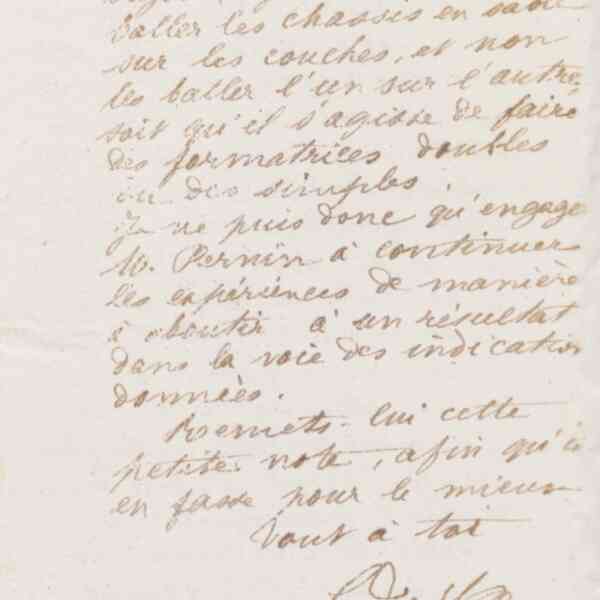 baller les chassis en
sur les couches, et non
les baller l'un sur l'autre
soit qu'il s'agisse de faire
des formatrices doubles
ou des simples.
Je ne puis donc qu'engage
M. Pernin à continuer
les expériences de manière
à aboutir à un résultat
dans la voie des indication
données.
Remets-lui cette
petite note, afin qu'i
en fasse pour le mieux
Tout à toi